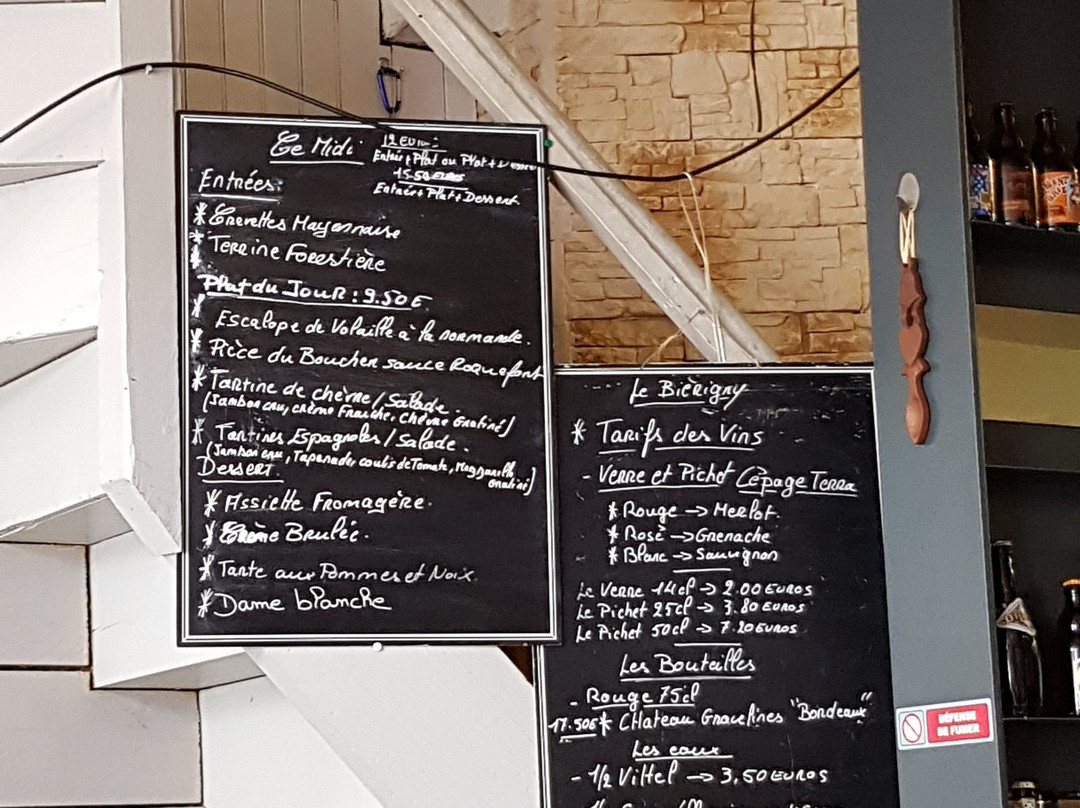 Ce Midi
12 Euros
Entrée + Plat ou Plat +
15.50 EUROS
Entrée + Plat + Dessert
Entrées:
* Crevettes Mayonnaise
* Terrine Forestière
Plat du Jour : 9.50 E
* Escalope de Volaille à la normande.
* Pièce du Boucher sauce Roquefort
* Tartine de chèvre / Salade.
(Jambon cru, crème Fraiche, Chèvre Gratiné)
* Tartines Espagnoles / Salade.
(Jambon cru, Tapenade, coulis de Tomate, Mozzarella
Gratiné)
Dessert.
* Assiette Fromagère.
* Crème Brulée.
* Tarte aux Pommes et Noix.
* Dame blanche
Le Bièrigny
* Tarifs des Vins
- Verre et Pichet Cépage Terra
* Rouge -> Merlot.
* Rosé -> Grenache
* Blanc -> Sauvignon
Le Verre 14cl -> 2.00 EUROS
Le Pichet 25cl -> 3.80 EUROS
Le Pichet 50cl -> 7.20 EUROS
Les Bouteilles
- Rouge 75cl
17.50E * Chateau Gravelines "Bordeaux"
Les eaux
- 1/2 Vittel -> 3,50 EUROS
DÉFENSE
DE FUMER